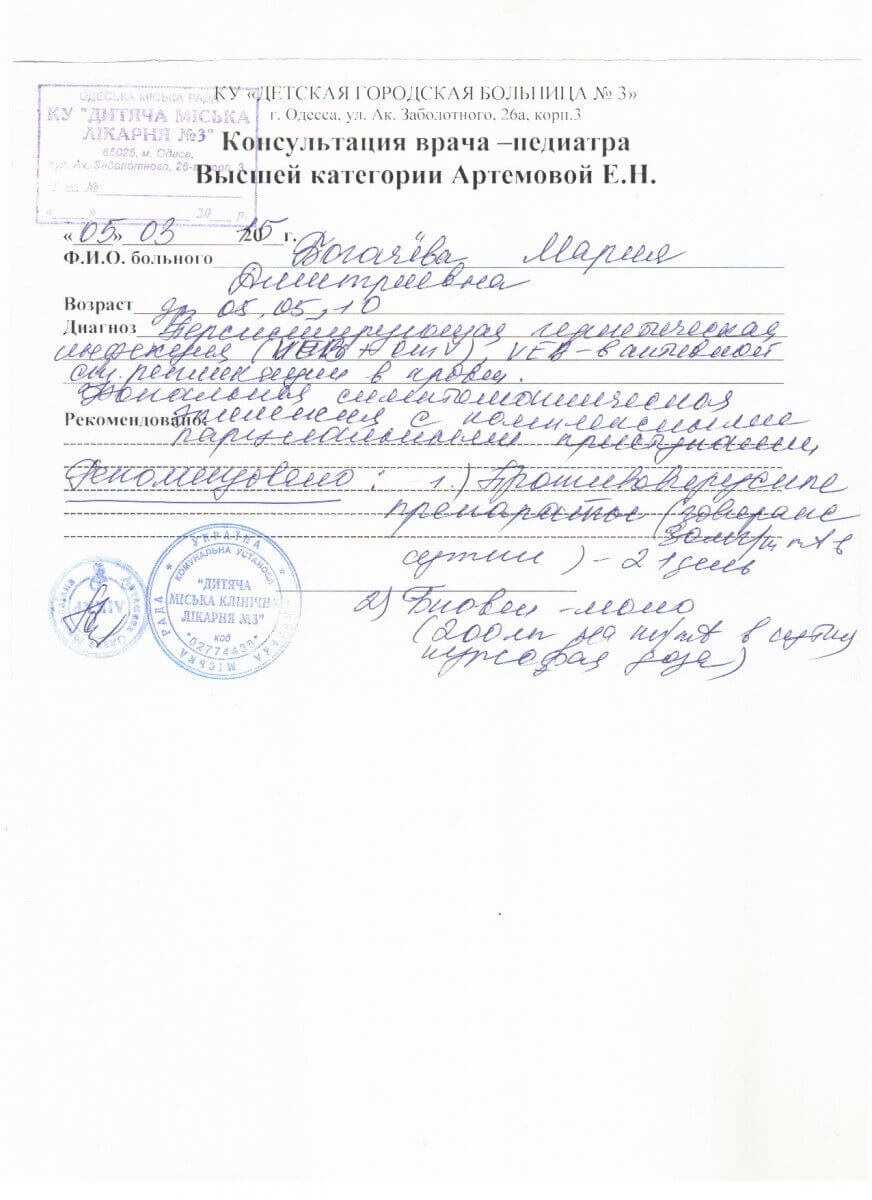 КУ «ДЕТСКАЯ ГОРОДСКАЯ БОЛЬНИЦА № 3»
г. Одесса, ул. Ак. Заболотного, 26а, корп.3
Консультация врача –педиатра
Высшей категории Артемовой Е.Н.
ОДЕСЬКА МІСЬКА РАДА
КУ "ДИТЯЧА МІСЬКА
ЛІКАРНЯ №3"
65025, м. Одеса,
вул. Ак. Заболотного, 26-а, корп. 3
Вих. №
« » 20 р.
«05» 03 2015 г.
Ф.И.О. больного Богачёва Мария
Дмитриевна
Возраст др 05,05,10
Диагноз Персистирующая герпетическая
инфекция ( + CMV), VEB-в активной
ст. репликации в крови.
Фокальная симптоматическая
Рекомендовано: эпилепсия с комплексными
парциальными приступами
Рекомендовано: 1.) Противовирусные
препараты (зовиракс
в
сутки) - 21 день
2) Биовен-моно
(200мл на в сутки
курсовая доза)
УКРАЇНА
МІСЬКА РАДА
КОМУНАЛЬНА УСТАНОВА
"ДИТЯЧА
МІСЬКА КЛІНІЧН
ЛІКАРНЯ №3"
код
*02774438*